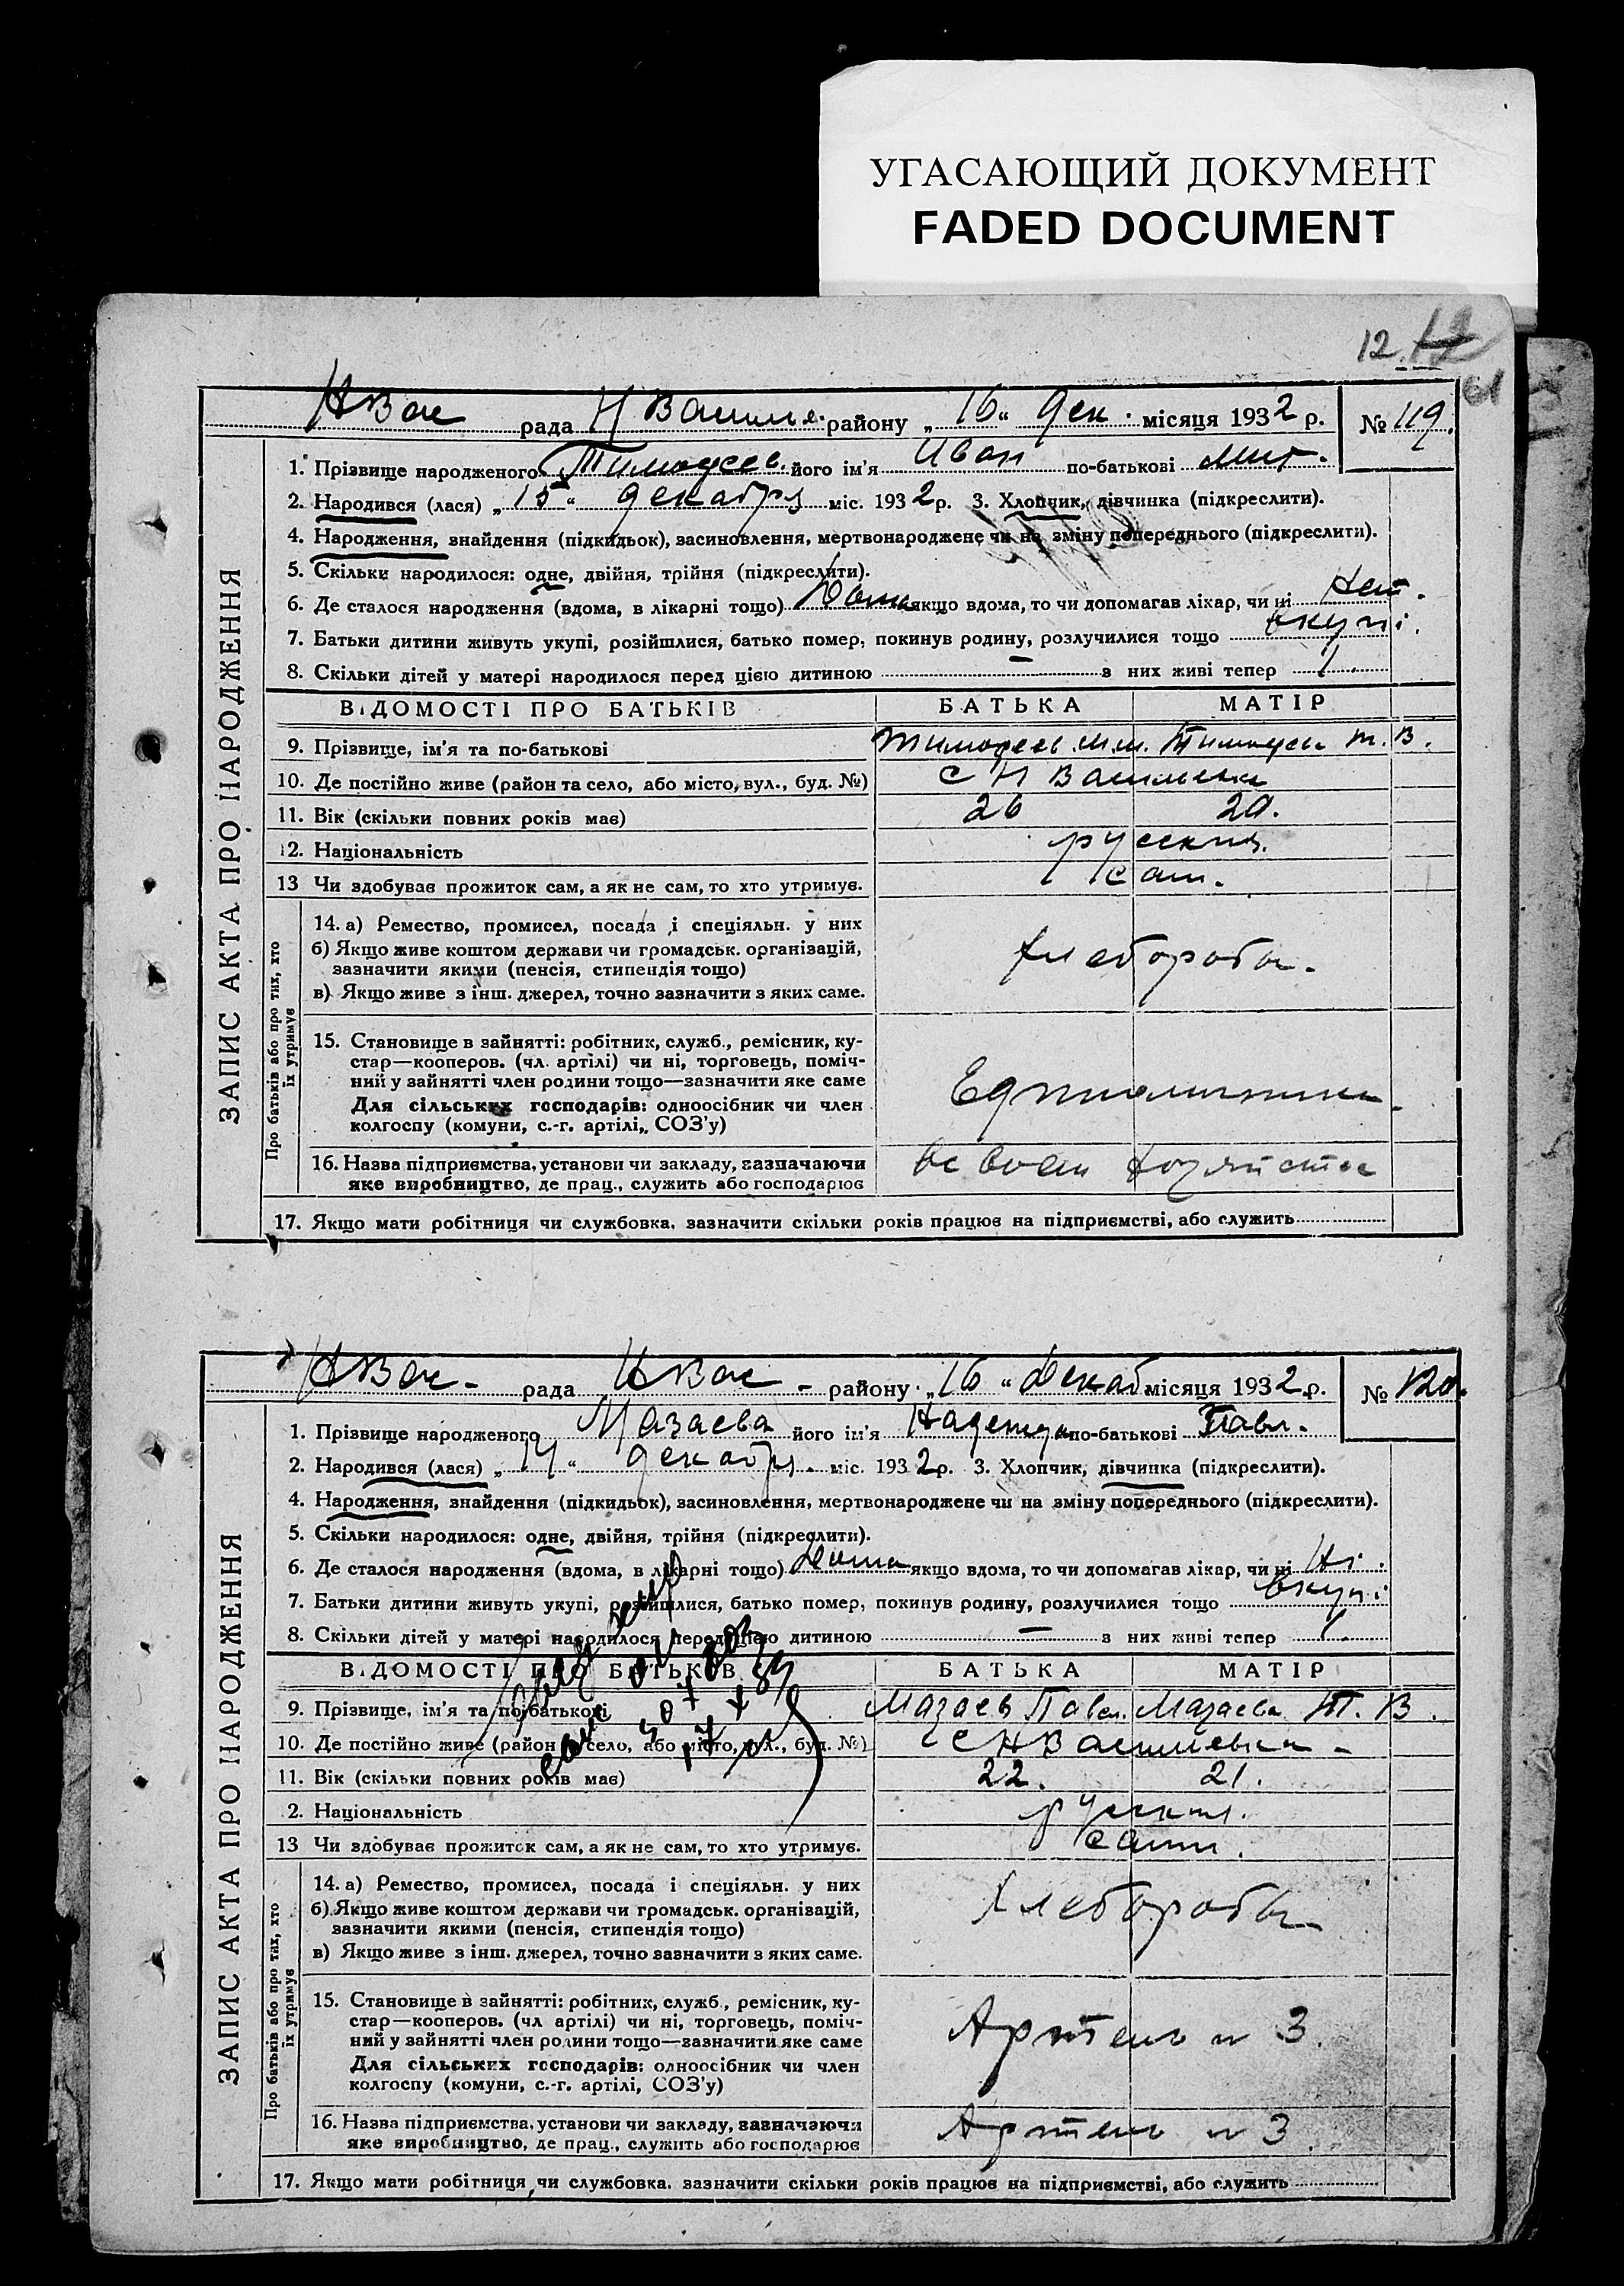 УГАСАЮЩИЙ ДОКУМЕНТ
FADED DOCUMENT
12.
61
НВас рада Н Василь. району „16“ Дек. місяця 1932 р. № 119.
ЗАПИС АКТА ПРО НАРОДЖЕННЯ
1. Прізвище народженого Тимофеев. його ім'я Иван по-батькові Мит.
2. Народився (лася) „15“ декабря міс. 1932 р. 3. Хлопчик, дівчинка (підкреслити).
4. Народження, знайдення (підкидьок), засиновлення, мертвонароджене чи на зміну попереднього (підкреслити).
5. Скільки народилося: одне, двійня, трійня (підкреслити).
6. Де сталося народження (вдома, в лікарні тощо) Дома якщо вдома, то чи допомагав лікар, чи ні Нет.
7. Батьки дитини живуть укупі, розійшлися, батько помер, покинув родину, розлучилися тощо вкупі.
8. Скільки дітей у матері народилося перед цією дитиною — з них живі тепер 1.
ВІДОМОСТІ ПРО БАТЬКІВ БАТЬКА МАТІР
9. Прізвище, ім'я та по-батькові Тимофеев М.М. Тимофеева Т. В.
10. Де постійно живе (район та село, або місто, вул., буд. №) с Н Василевка
11. Вік (скільки повних років має) 26 20.
12. Національність русския.
13 Чи здобував прожиток сам, а як не сам, то хто утримує. сам.
Про батьків або про тих, хто їх утримує
14. а) Ремество, промисел, посада і спеціяльн. у них
б) Якщо живе коштом держави чи громадськ. організацій,
зазначити якими (пенсія, стипендія тощо)
в) Якщо живе з інш. джерел, точно зазначити з яких саме.
хлеборобы.
15. Становище в зайнятті: робітник, служб., ремісник, ку-
стар—кооперов. (чл. артілі) чи ні, торговець, поміч-
ний у зайнятті член родини тощо—зазначити яке саме
Для сільських господарів: одноосібник чи член
колгоспу (комуни, с.-г. артілі, СОЗ'у)
Единоличники.
16. Назва підприємства, установи чи закладу, зазначаючи
яке виробництво, де прац., служить або господарює
в своем хозяйстве
17. Якщо мати робітниця чи службовка, зазначити скільки років працює на підприємстві, або служить
НВас- рада НВас- району „16“ Декаб місяця 1932 р. № 120.
ЗАПИС АКТА ПРО НАРОДЖЕННЯ
1. Прізвище народженого Мазаева його ім'я Надежда по-батькові Павл.
2. Народився (лася) „14“ декабря. міс. 1932 р. 3. Хлопчик, дівчинка (підкреслити).
4. Народження, знайдення (підкидьок), засиновлення, мертвонароджене чи на зміну попереднього (підкреслити).
5. Скільки народилося: одне, двійня, трійня (підкреслити).
6. Де сталося народження (вдома, в лікарні тощо) Дома якщо вдома, то чи допомагав лікар, чи ні Ні.
7. Батьки дитини живуть укупі, розійшлися, батько помер, покинув родину, розлучилися тощо вкупі
8. Скільки дітей у матері народилося перед цією дитиною — з них живі тепер 1.
ВІДОМОСТІ ПРО БАТЬКІВ БАТЬКА МАТІР
9. Прізвище, ім'я та по-батькові Мазаев Павл. Мазаева Т. В.
10. Де постійно живе (район та село, або місто, вул., буд. №) с НВасилевка
11. Вік (скільки повних років має) 22. 21.
2. Національність русския.
13 Чи здобував прожиток сам, а як не сам, то хто утримує. сами.
Про батьків або про тих, хто їх утримує
14. а) Ремество, промисел, посада і спеціяльн. у них
б) Якщо живе коштом держави чи громадськ. організацій,
зазначити якими (пенсія, стипендія тощо)
в) Якщо живе з інш. джерел, точно зазначити з яких саме.
Хлеборобы
15. Становище в зайнятті: робітник, служб., ремісник, ку-
стар—кооперов. (чл артілі) чи ні, торговець, поміч-
ний у зайнятті член родини тощо—зазначити яке саме
Для сільських господарів: одноосібник чи член
колгоспу (комуни, с.-г. артілі, СОЗ'у)
Артель № 3.
16. Назва підприємства, установи чи закладу, зазначаючи
яке виробництво, де прац., служить або господарює
Артель № 3.
17. Якщо мати робітниця, чи службовка, зазначити скільки років працює на підприємстві, або служить